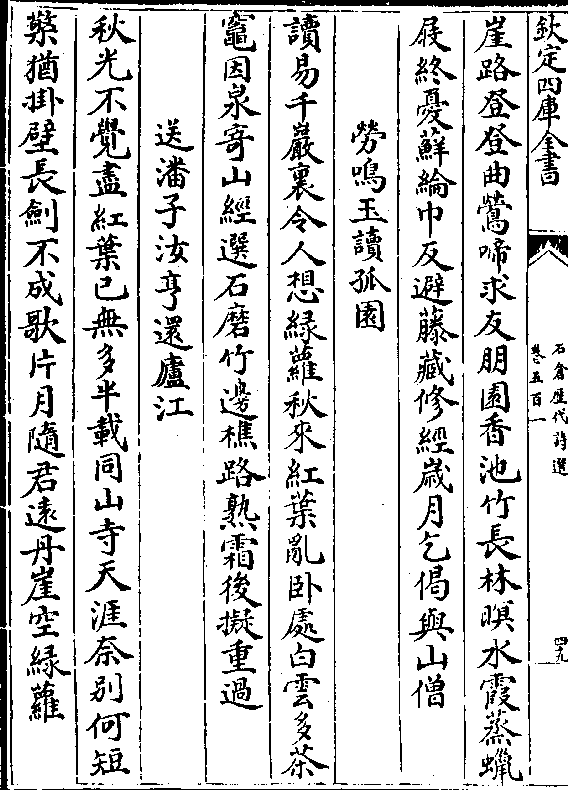 欽定四庫全書
石倉歷代詩選
卷五百一
四九
崖路登登曲鶯啼求友朋園香池竹長林暝水霞蒸蠟
屐終憂蘚綸巾反避藤藏修經歲月乞偈與山僧
勞鳴玉讀孤園
讀易千巖裏令人想緑蘿秋來紅葉亂卧處白雲多茶
竈因泉寄山經選石磨竹邊樵路熟霜後擬重過
送潘子汝亨還廬江
秋光不覺盡紅葉已無多半載同山寺天涯奈别何短
檠猶掛壁長劍不成歌片月隨君逺丹崖空緑蘿